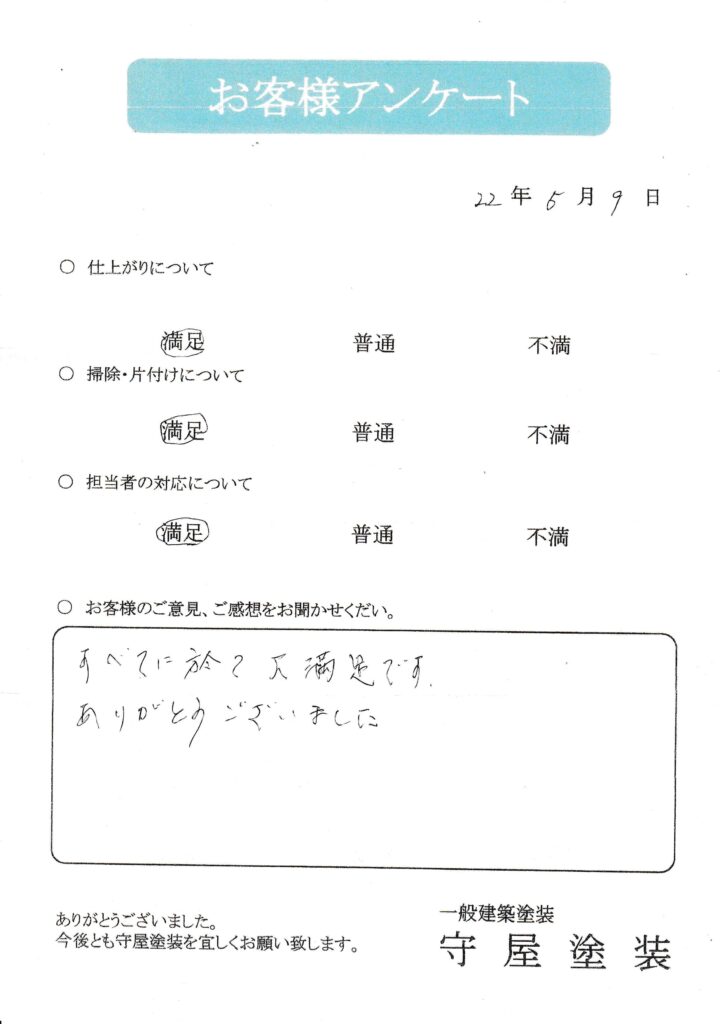 お客様アンケート
22年5月9日
○ 仕上がりについて
満足 普通 不満
○ 掃除・片付けについて
満足 普通 不満
○ 担当者の対応について
満足 普通 不満
○ お客様のご意見、ご感想をお聞かせくだい。
すべてに於て大満足です。
ありがとうございました
ありがとうございました。
今後とも守屋塗装を宜しくお願い致します。
一般建築塗装
守屋塗装